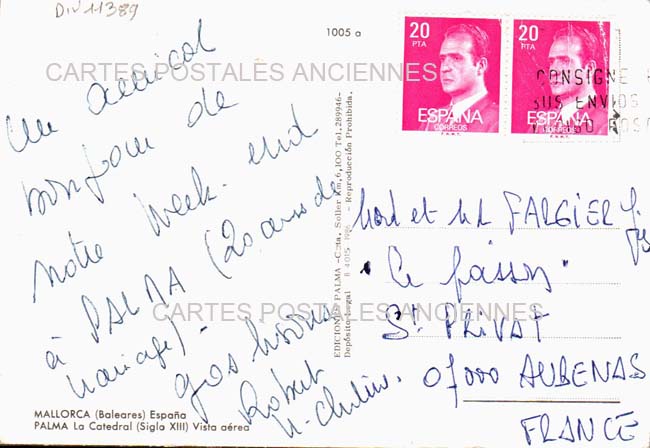 DIV 11389
1005 a
CARTES POSTALES ANCIENNES
20
PTA
ESPAÑA
CORREOS
20
PTA
ESPAÑA
CORREOS
CONSIGNE
SUS ENVIOS
Un amical
bonjour de
notre week-end
à PALMA (20 ans de
mariage).
gros bisous
Robert
EDICIONES PALMA - Ctra. Soller Km. 6,100 Tel. 289946-
Depósito Legal - Reproducción Prohibida.
et FARGIER
St PRIVAT
07000 AUBENAS
FRANCE
CARTES POSTALES ANCIENNES
MALLORCA (Baleares) España
PALMA La Catedral (Siglo XIII) Vista aérea